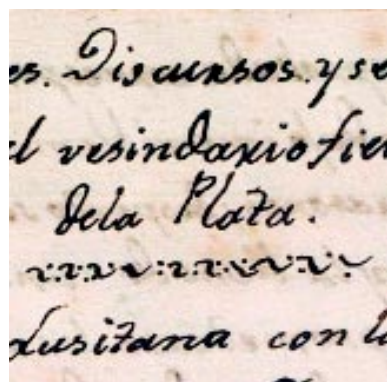 es. Discursos. y se
el vesindario fie
dela Plata.
Lusitana con la